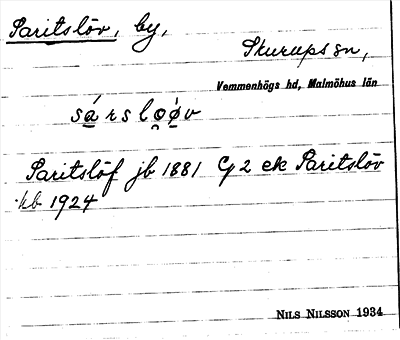 Saritslöv, by,
Skurups sn,
Vemmenhögs hd, Malmöhus län
sá̱rslo̯ǿ̱v
Saritslöf jb 1881 G2 ek Saritslöv
kb 1924
NILS NILSSON 1934